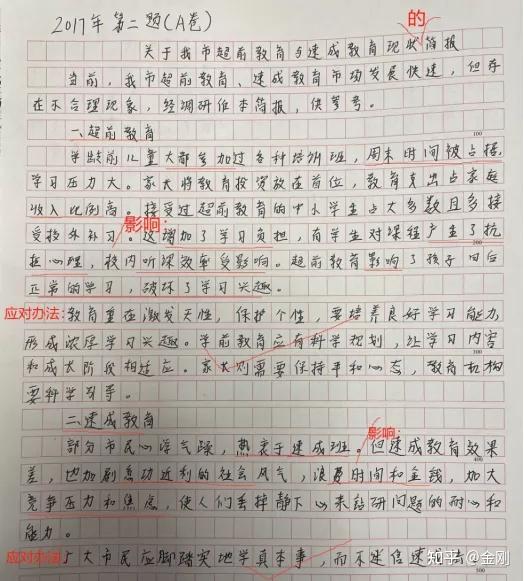 2017年第二题(A卷)
的
关于我市超前教育与速成教育现状简报
当前,我市超前教育、速成教育市场发展快速,但存
在不合理现象,经调研作本简报,供参考。
一、超前教育
100
学龄前儿童大都参加过各种培训班,周末时间被占据,
学习压力大。家长将教育投资放在首位,教育支出占家庭
收入比例高。接受过超前教育的中小学生占大多数且多接
影响:
受校外补习。这增加了学习负担,有学生对课程产生了抗
拒心理,校内听课效率受影响。超前教育影响了孩子日后
正常的学习,破坏了学习兴趣。
应对办法:教育重在激发天性,保护个性,要培养良好学习能力,
形成浓厚学习兴趣。学前教育应有科学规划,让学习内容
和成长阶段相适应。家长则需要保持平和心态,教育机构
要科学引导。
二、速成教育
影响:
部分市民心浮气躁,热衷于速成班。但速成教育效果
差,也加剧急功近利的社会风气,浪费时间和金钱,加大
400
竞争压力和焦虑,使人们丢掉静下心来钻研问题的耐心和
能力。
应对办法:广大市民应脚踏实地学真本事,而不迷信速
500
知乎 @金刚